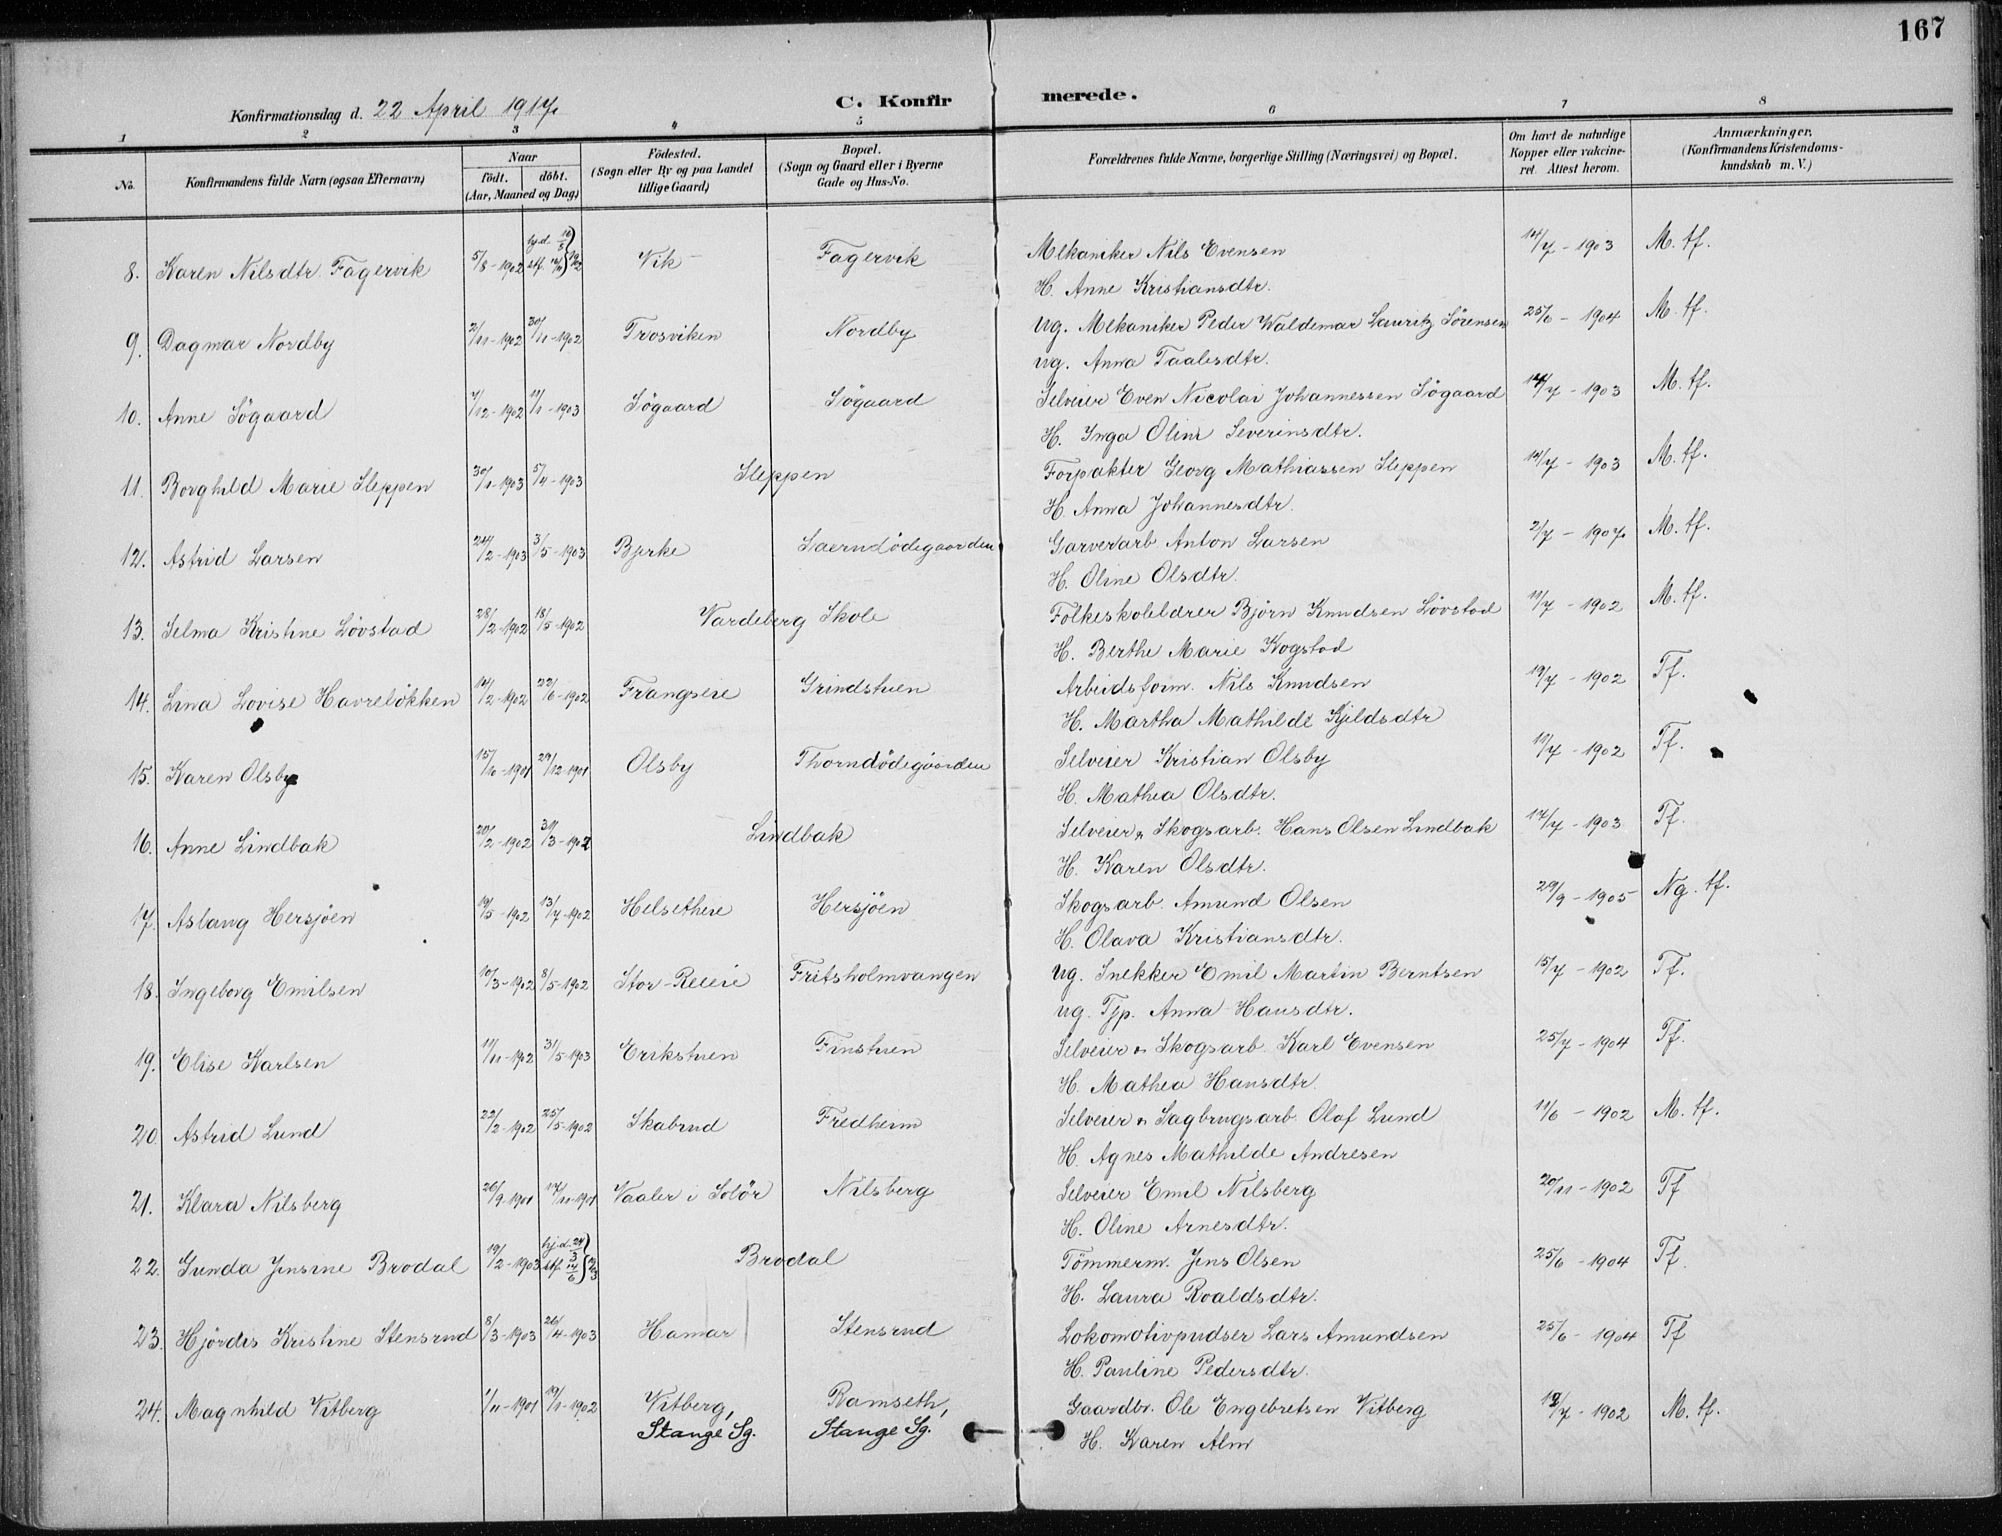 167
Konfirmationsdag d. 22 April 1917.
C. Konfirmerede.
1 2 3 4 5 6 7 8
No. Konfirmandens fulde Navn (ogsaa Efternavn) Naar födt. döbt. (Aar, Maaned og Dag) Födested. (Sogn eller By og paa Landet tillige Gaard) Bopæl. (Sogn og Gaard eller i Byerne Gade og Hus-No. Forældrenes fulde Navne, borgerlige Stilling (Næringsvei) og Bopæl. Om havt de naturlige Kopper eller vakcineret. Attest herom. Anmærkninger. (Konfirmandens Kristendomskundskab m. V.)
8. Karen Nilsdtr. Fagervik 5/8-1902 hj.d. 10/8 stf. 1902 Vik Fagervik Mekaniker Nils Evensen 14/7-1903 M. tf.
H. Anne Kristiansdtr.
9. Dagmar Nordby 2/11-1902 30/11-1902 Trosviken Nordby ug. Mekaniker Peder Waldemar Lauritz Sörensen 25/6-1904 M. tf.
ug. Anna Taalesdtr.
10. Anne Sögaard 7/12-1902 11/1-1903 Sögaard Sögaard Selveier Even Nicolai Johannessen Sögaard 14/7-1903 M. tf.
H. Inga Oline Severinsdtr.
11. Borghild Marie Sleppen 30/1-1903 5/4-1903 Sleppen Forpakter Georg Mathiassen Sleppen 14/7-1903 M. tf.
H. Anna Johannesdtr.
12. Astrid Larsen 24/2-1903 3/5-1903 Bjerke Saerndödegaarden Garverarb. Anton Larsen 2/7-1907 M. tf.
H. Oline Olsdtr.
13. Selma Kristine Lövstad 28/2-1902 18/5-1902 Vardeberg Skole Folkeskolelærer Björn Knudsen Lövstad 11/7-1902 M. tf.
H. Berthe Marie Kogstad
14. Lina Lovise Havrelökken 12/2-1902 22/6-1902 Frangseie Grindstuen Arbeidsform. Nils Knudsen 19/7-1902 Tf.
H. Martha Mathilde Kjeldsdtr
15. Karen Olsby 15/10-1901 29/12-1901 Olsby Thorndödegaarden Selveier Kristian Olsby 19/7-1902 Tf.
H. Mathea Olsdtr.
16. Anne Lindbak 20/2-1902 31/3-1902 Lindbak Selveier & Skogsarb. Hans Olsen Lindbak 14/7-1903 Tf.
H. Karen Olsdtr.
17. Aslaug Hersjöen 19/5-1902 13/7-1902 Helsetheie Hersjöen Skogsarb. Amund Olsen 29/9-1905 Ng. tf.
H. Olava Kristiansdtr.
18. Ingeborg Emilsen 10/3-1902 8/5-1902 Stor-Reeie Fritsholmvangen ug. Snekker Emil Martin Berntsen 15/7-1902 Tf.
ug. Tjp. Anna Hansdtr.
19. Elise Karlsen 11/11-1902 31/5-1903 Erikstuen Finstuen Selveier & Skogsarb. Karl Evensen 25/7-1904 Tf.
H. Mathea Hansdtr.
20. Astrid Lund 22/2-1902 25/5-1902 Skabrud Fredheim Selveier & Sagbrugsarb. Olaf Lund 11/6-1902 M. tf.
H. Agnes Mathilde Andresen
21. Klara Nilsberg 26/9-1901 17/11-1901 Vaaler i Solör Nilsberg Selveier Emil Nilsberg 20/11-1902 Tf
H. Oline Arnesdtr.
22. Gunda Jensine Brodal 19/2-1903 hj.d. 24/3 stf. 14/6 03 Brodal Tömmerm. Jens Olsen 25/6-1904 Tf.
H. Laura Roaldsdtr.
23. Hjördis Kristine Stensrud 8/3-1903 26/4-1903 Hamar Stensrud Lokomotivpudser Lars Amundsen 25/6-1904 Tf
H. Pauline Pedersdtr.
24. Magnhild Vitberg 1/11-1901 19/1-1902 Vitberg, Stange Sg. Ramseth, Stange Sg. Gaardbr. Ole Engebretsen Vitberg /7-1902 M. tf.
H. Karen Alm